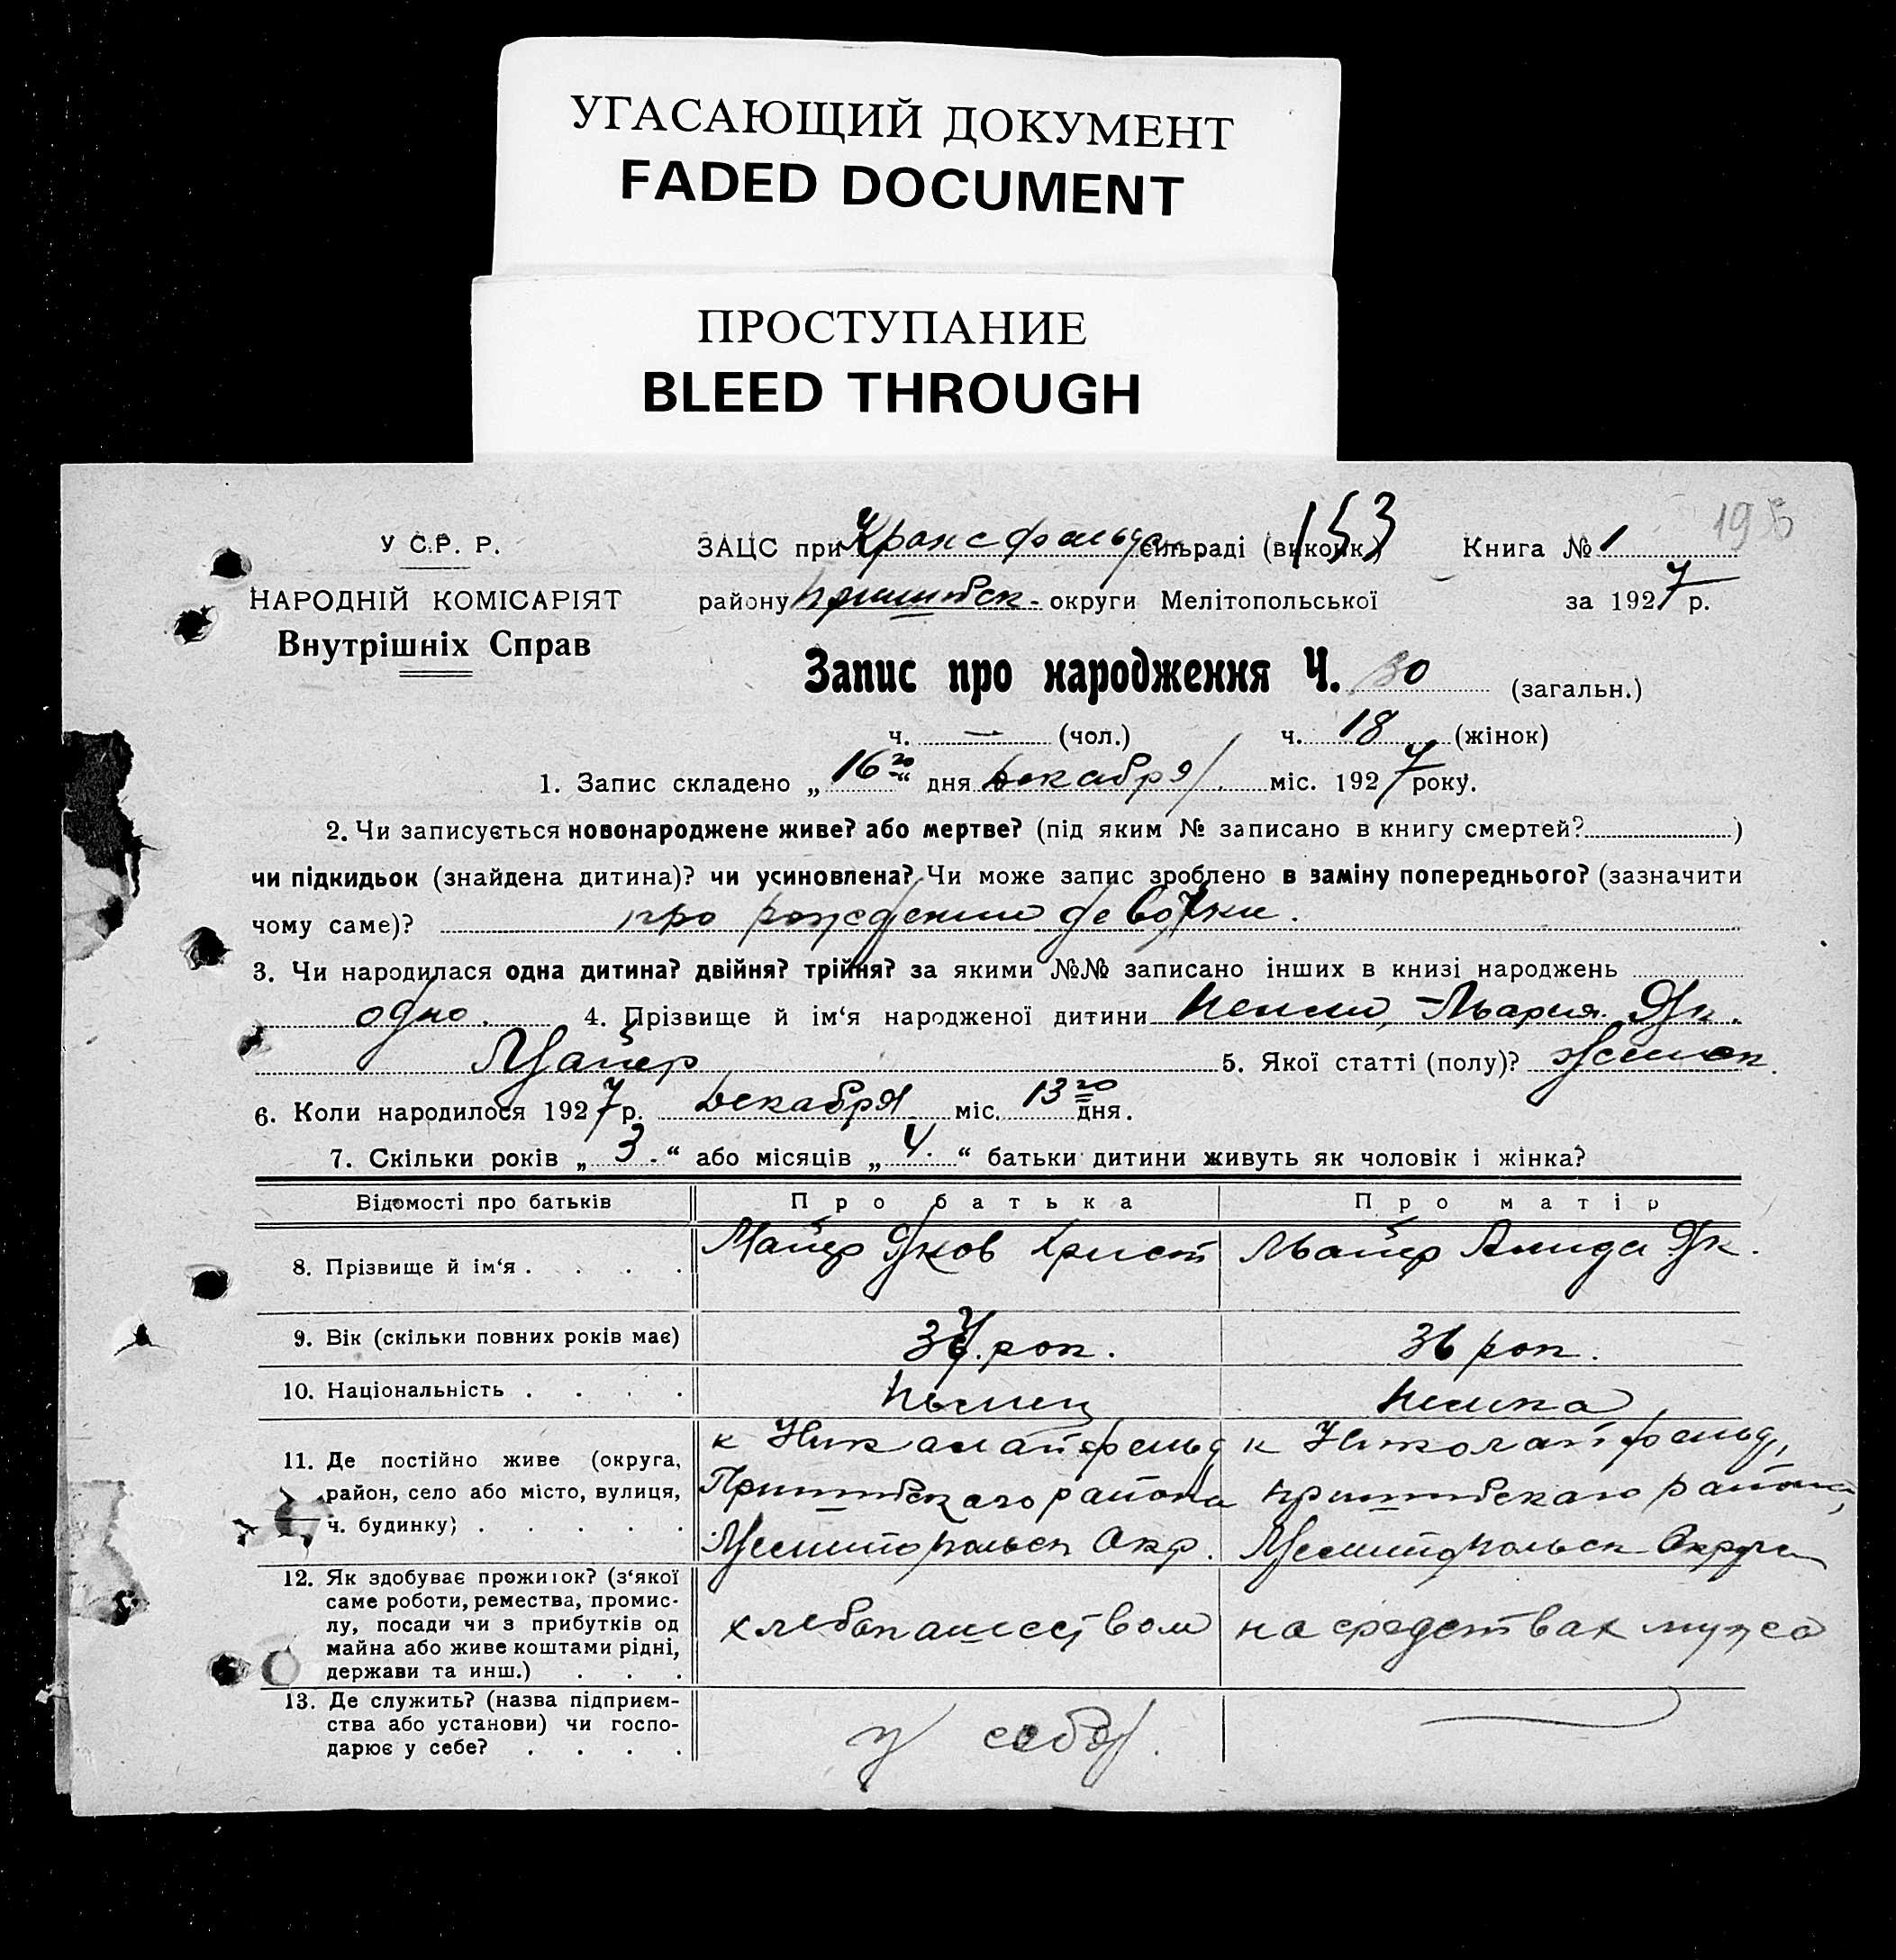 УГАСАЮЩИЙ ДОКУМЕНТ
FADED DOCUMENT
ПРОСТУПАНИЕ
BLEED THROUGH
195
У С.Р. Р.
НАРОДНІЙ КОМІСАРІЯТ
Внутрішніх Справ
ЗАЦС при Кронсфельд сільраді (виконк.) 153 Книга № 1
району Пришибск. округи Мелітопольської за 1927 р.
Запис про народження Ч. 30 (загальн.)
ч. — (чол.) ч. 18 (жінок)
1. Запис складено „16го“ дня Декабря міс. 1927 року.
2. Чи записується новонароджене живе? або мертве? (під яким № записано в книгу смертей? )
чи підкидьок (знайдена дитина)? чи усиновлена? Чи може запис зроблено в заміну попереднього? (зазначити
чому саме)? про рождении девочки.
3. Чи народилася одна дитина? двійня? трійня? за якими №№ записано інших в книзі народжень
одно. 4. Прізвище й ім‘я народженої дитини Мария Як.
Майер 5. Якої статті (полу)? женск.
6. Коли народилося 1927 р. Декабря міс. 13го дня.
7. Скільки років „3.“ або місяців „4.“ батьки дитини живуть як чоловік і жінка?
Відомості про батьків Про батька Про матір
8. Прізвище й ім‘я . . . . Майер Яков Христ Майер Алида Як.
9. Вік (скільки повних років має) 37 рок. 36 рок.
10. Національність . . . . Немец Немка
11. Де постійно живе (округа, к Николайфельд к Николайфельд,
район, село або місто, вулиця, Пришибскаго района Пришибскаго района,
ч. будинку) . . . . . Мелитопольск Окр. Мелитопольск Округа
12. Як здобуває прожиток? (з‘якої
саме роботи, ремества, промис-
лу, посади чи з прибутків од хлебопашеством на средствах мужа
майна або живе коштами рідні,
держави та инш.) . . .
13. Де служить? (назва підприєм-
ства або установи) чи госпо- у себя. —
дарює у себе? . . . .